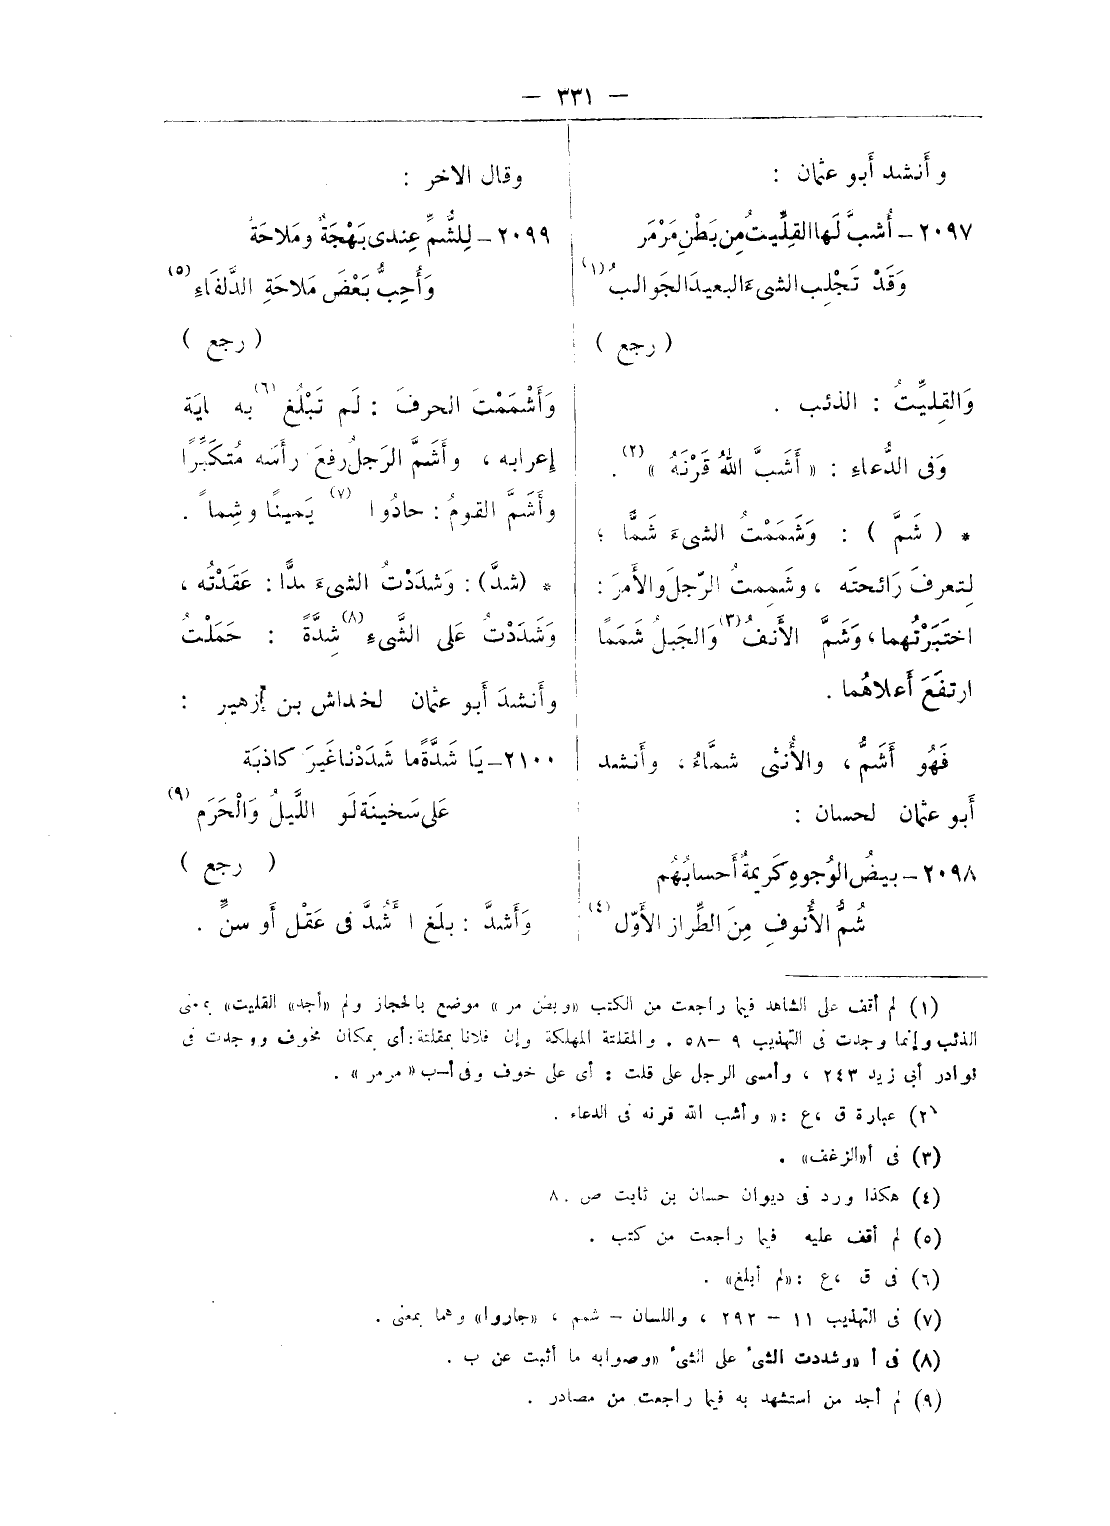 — ٣٣١ —
وأنشد أبو عثمان :
٢٠٩٧ – أُشبَّ لَها القِلِّيتُ مِن بَطْنِ مَرْمَر
وَقَدْ تَجْلِب الشىءَ البعيدَ الجَوالبُ (١)
( رجع )
وَالقِلِيِّتُ : الذئب .
وَفى الدُّعاءِ : « أَشَبَّ اللهُ قَرْنَهُ » (٢) .
* ( شَمَّ ) : وَشَمَمْتُ الشىءَ شَمًّا ؛
لِتعرفَ رَائحتَه ، وشَممتُ الرّجلَ والأَمرَ :
اختَبَرْتُهما ، وَشَمَّ الأَنفُ (٣) وَالجَبلُ شَمَمًا
ارتفَعَ أَعلاهُما .
فَهُو أَشَمُّ ، والأُنثى شمَّاءُ ، وأَنشد
أَبو عثمان لحسان :
٢٠٩٨ – بيضُ الوُجوهِ كَرِيمةٌ أَحسابُهُم
شُمُّ الأُنوفِ مِنَ الطِّراز الأَوّل (٤)
وقال الاخر :
٢٠٩٩ – لِلشُّمِّ عِندى بَهْجَةٌ ومَلاحَةٌ
وَأُحِبُّ بَعْضَ مَلاحَةِ الذَّلفَاءِ (٥)
( رجع )
وَأَشْمَمْتَ الحرفَ : لَم تَبْلُغ (٦) به ايَة
إِعرابه ، وأَشَمَّ الرَجلُ رفعَ رأَسَه مُتكَبِّرًا
وأَشَمَّ القومُ : حادُوا (٧) يَمينًا وشِماً .
* (شدَّ) : وَشدَدْتُ الشىءَ دًّا : عَقَدْتُه ،
وَشَدَدْتُ عَلى الشَّىءِ (٨) شِدَّةً : حَمَلْتُ
وأَنشدَ أَبو عثمان لخداش بن زهير :
٢١٠٠ – يَا شَدَّةً ما شَدَدْنا غَيرَ كاذبَة
عَلى سَخينَة لَو اللَّيلُ وَالْحَرَم (٩)
( رجع )
وَأَشدَّ : بلَغ أَشُدَّ فى عَقْل أَو سنٍّ .
(١) لم أقف على الشاهد فيما راجعت من الكتب «وبطن مر» موضع بالحجاز ولم «أجد» القليت» بمعنى
الذئب وإنما وجدت فى التهذيب ٩ – ٥٨ . والمقلتة المهلكة وإن فلانا بمقلتة : أى بمكان مخوف ووجدت فى
نوادر أبى زيد ٢٤٣ ، وأمسى الرجل على قلت : أى على خوف وفى أ–ب « مرمر » .
(٢) عبارة ق ،ع : « وأشب الله قرنه فى الدعاء .
(٣) فى أ«الزغف» .
(٤) هكذا ورد فى ديوان حسان بن ثابت ص ٨٠
(٥) لم أقف عليه فيما راجعت من كتب .
(٦) فى ق ،ع : «لم أبلغ» .
(٧) فى التهذيب ١١ – ٢٩٢ ، واللسان – شمم ، «جاروا» وهما بمعنى .
(٨) فى أ «وشددت الشىء على الشىء «وصوابه ما أثبت عن ب .
(٩) لم أجد من استشهد به فيما راجعت من مصادر .